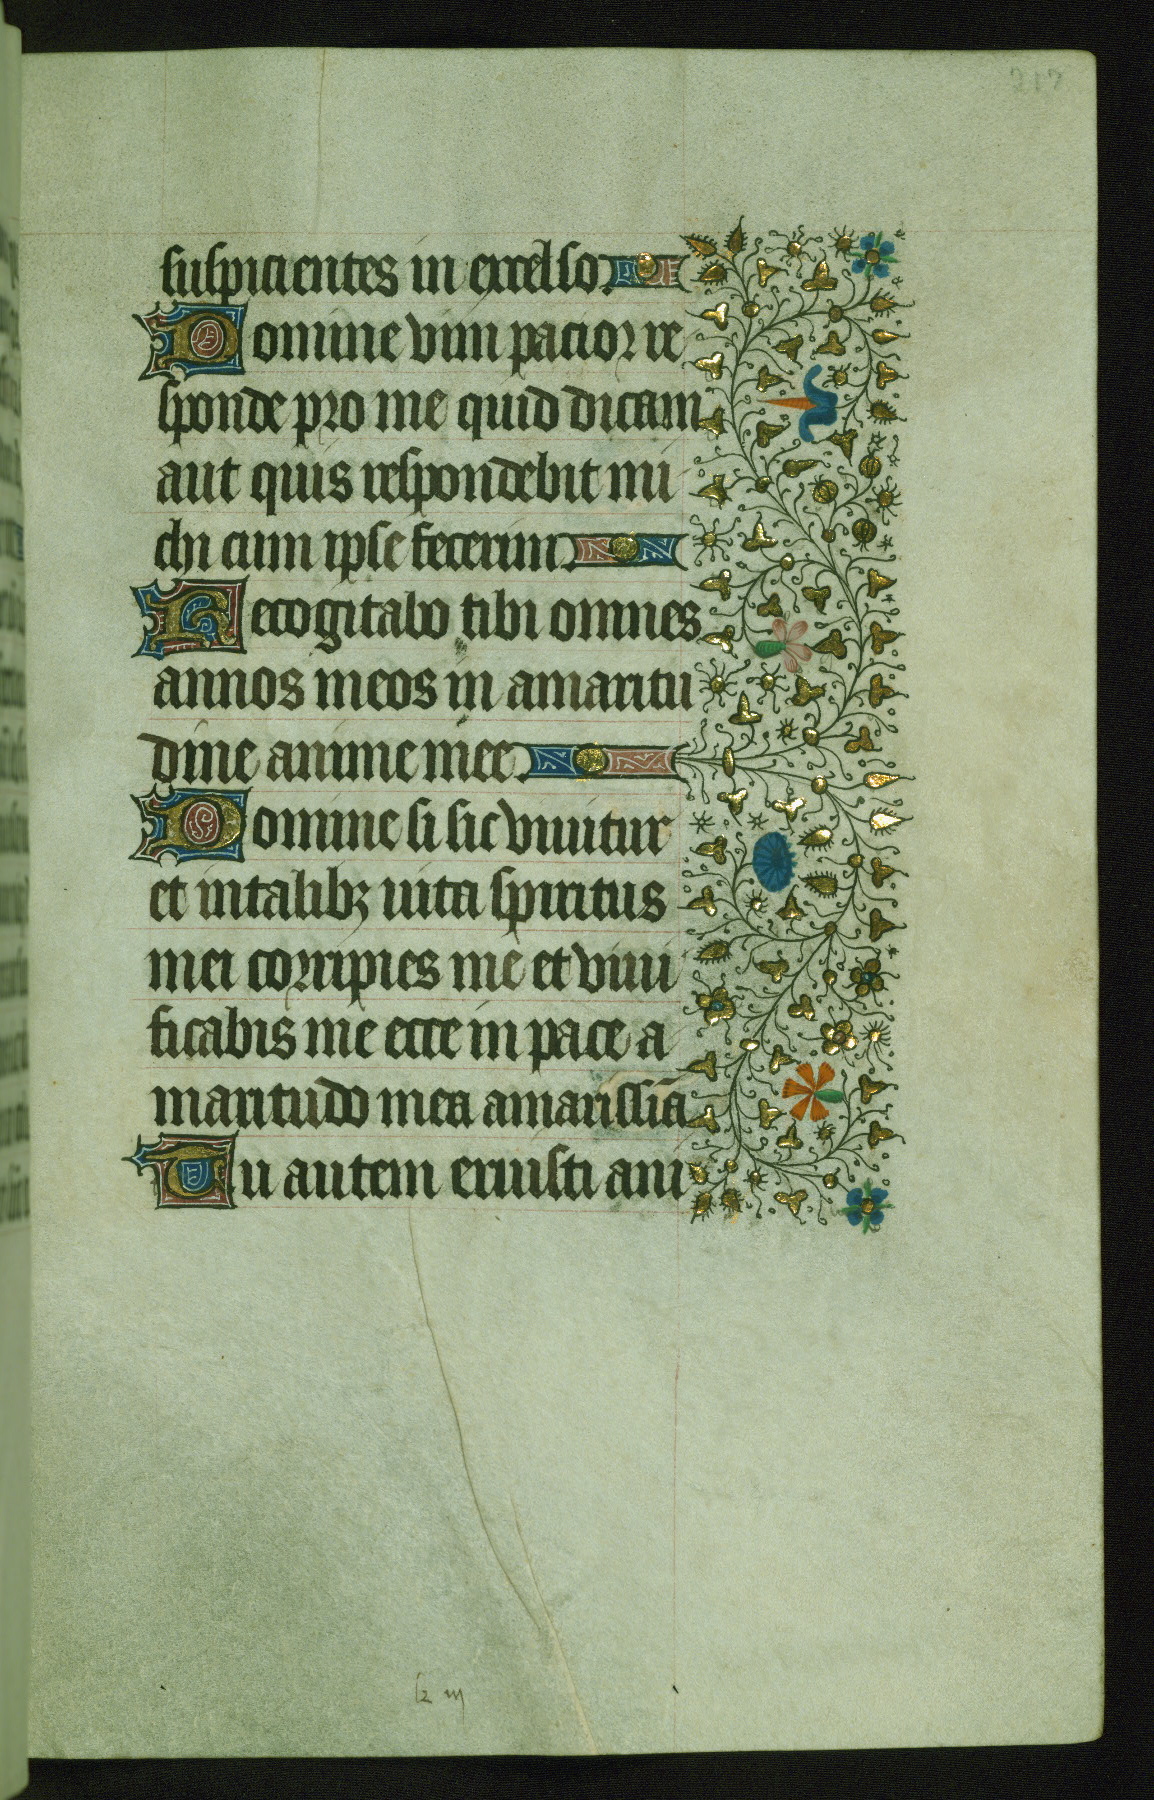 217
suspicientes in excelso.
Domine vim pacior re
sponde pro me quid dicam
aut quis respondebit mi
chi cum ipse fecerim.
Recogitabo tibi omnes
annos meos in amaritu
dine anime mee
Domine si sic viuitur
et in talibꝫ uita spiritus
mei corripies me et viui
ficabis me ecce in pace a
maritudo mea amarissia̅
Tu autem eruisti ani